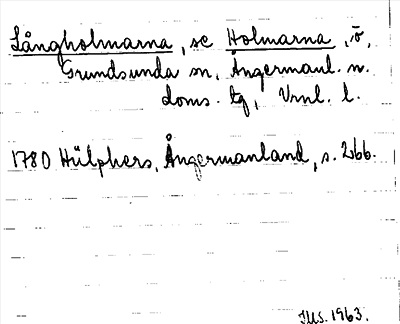 Långholmarna, se Holmarna, ö,
Grundsunda sn, Ångermanl. n.
doms. tg, Vrnl. l.
1780 Hülphers, Ångermanland, s. 266.
JUS. 1963.